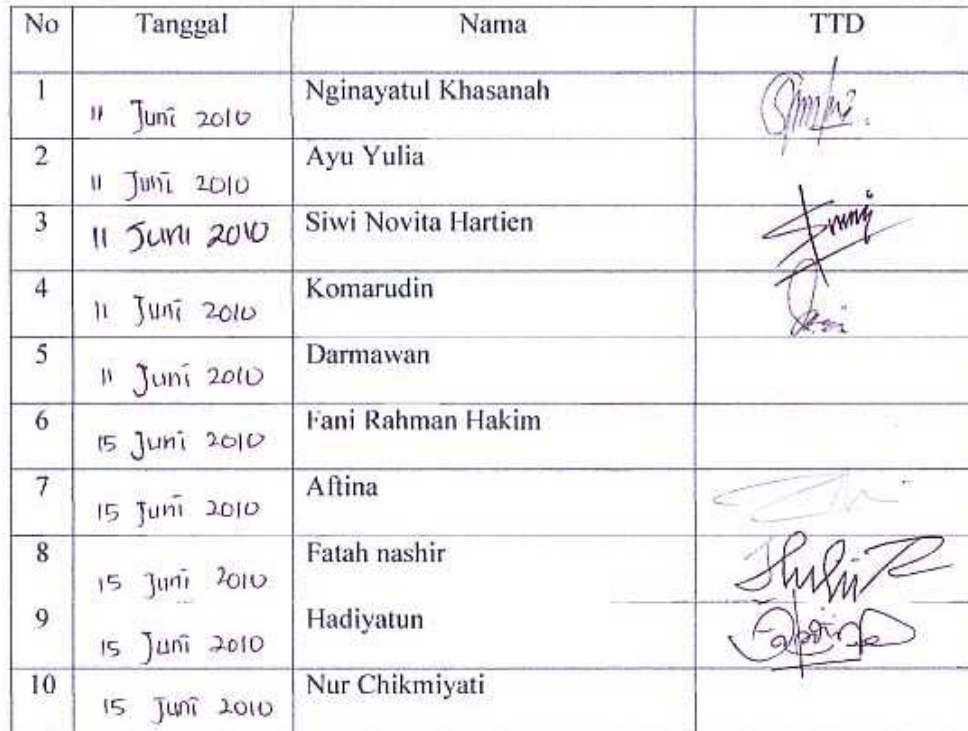 No Tanggal Nama TTD
1 11 Juni 2010 Nginayatul Khasanah
2 11 Juni 2010 Ayu Yulia
3 11 Juni 2010 Siwi Novita Hartien
4 11 Juni 2010 Komarudin
5 11 Juni 2010 Darmawan
6 15 Juni 2010 Fani Rahman Hakim
7 15 Juni 2010 Aftina
8 15 Juni 2010 Fatah nashir
9 15 Juni 2010 Hadiyatun
10 15 Juni 2010 Nur Chikmiyati